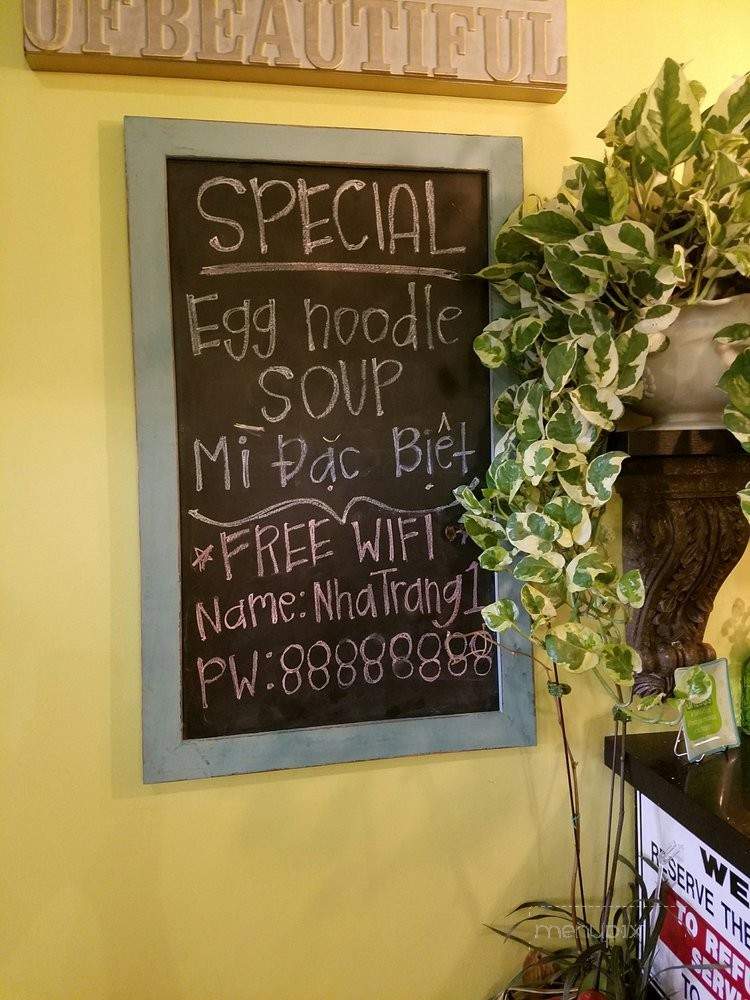 OF BEAUTIFUL
SPECIAL
Egg noodle
SOUP
Mì Đặc Biệt
*FREE WIFI*
Name: NhaTrang1
PW: 88888888
WE
RESERVE THE
TO REF
SERV
TO
menupix